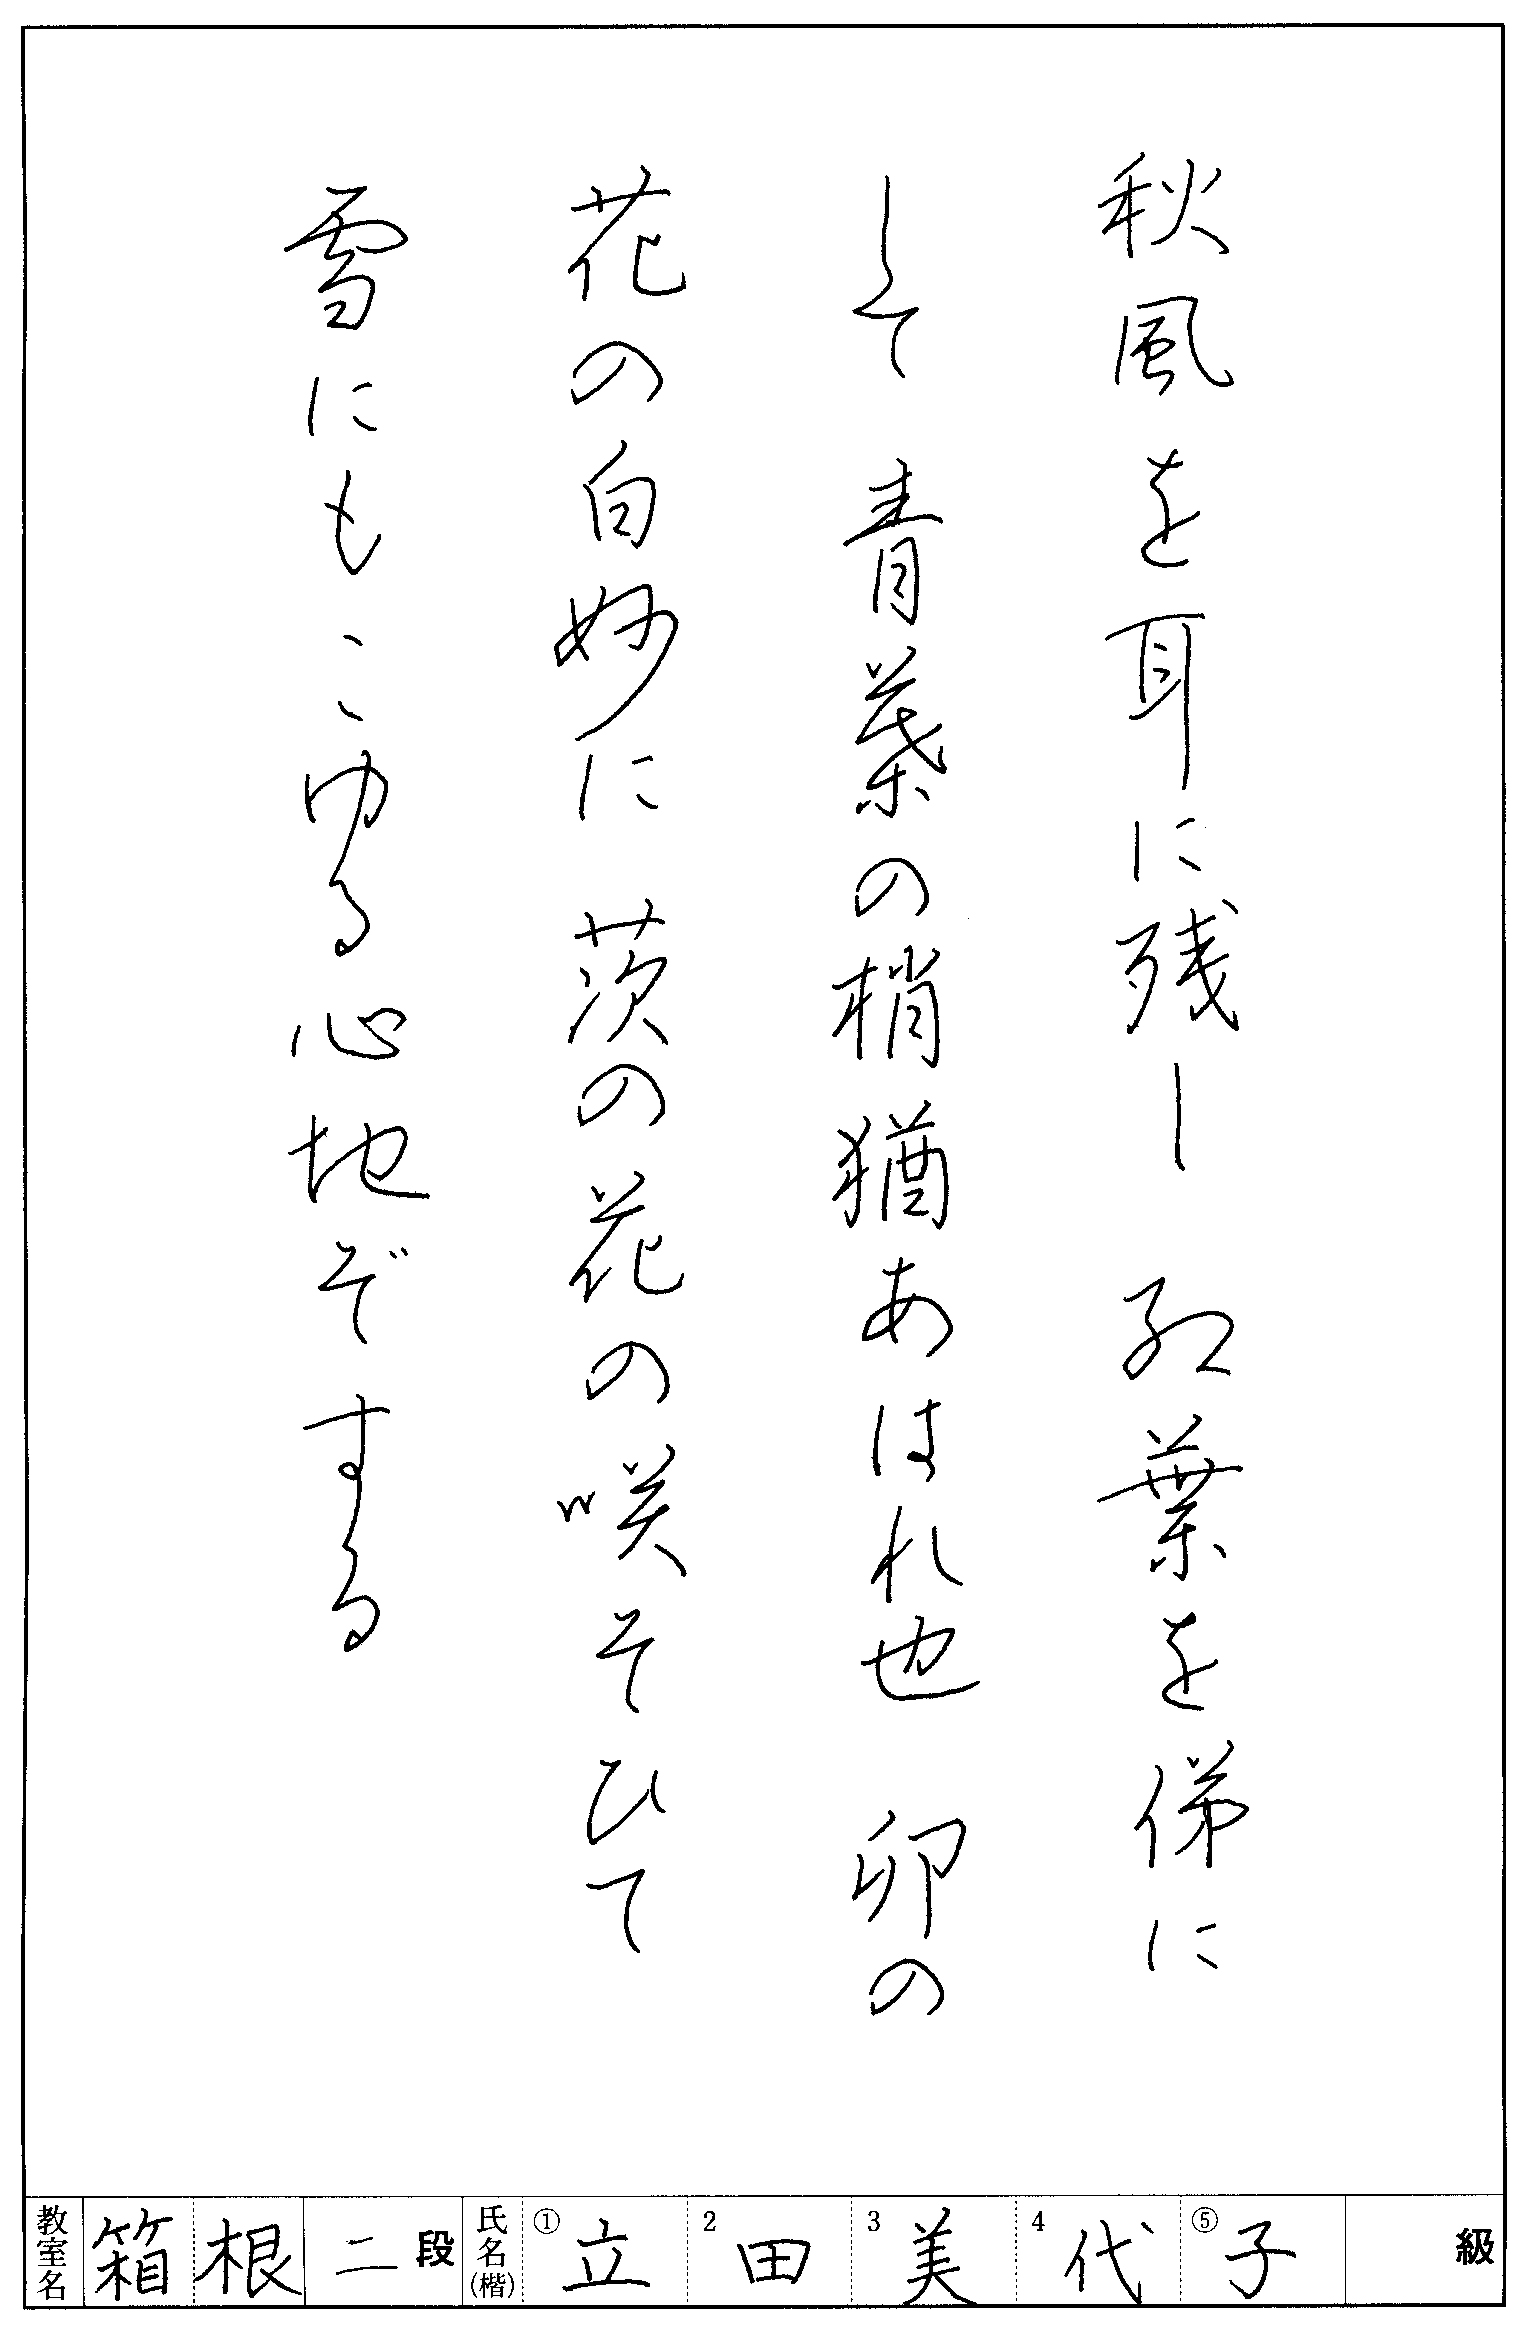 秋風を耳に残し 紅葉を俤に
して 青葉の梢猶あはれ也 卯の
花の白妙に 茨の花の咲そひて
雪にもこゆる心地ぞする
教室名 箱根 二段 氏名(楷) ①立 2田 3美 4代 ⑤子 級